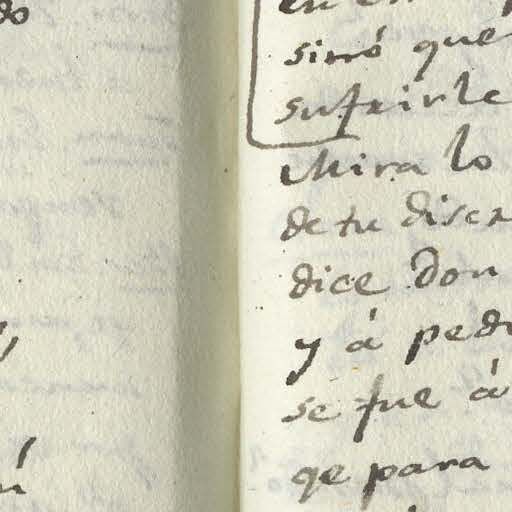 do
sinó que
sufrirle
Mira lo
de tu discr
dice Don
y á pedi
se fue á
qe para